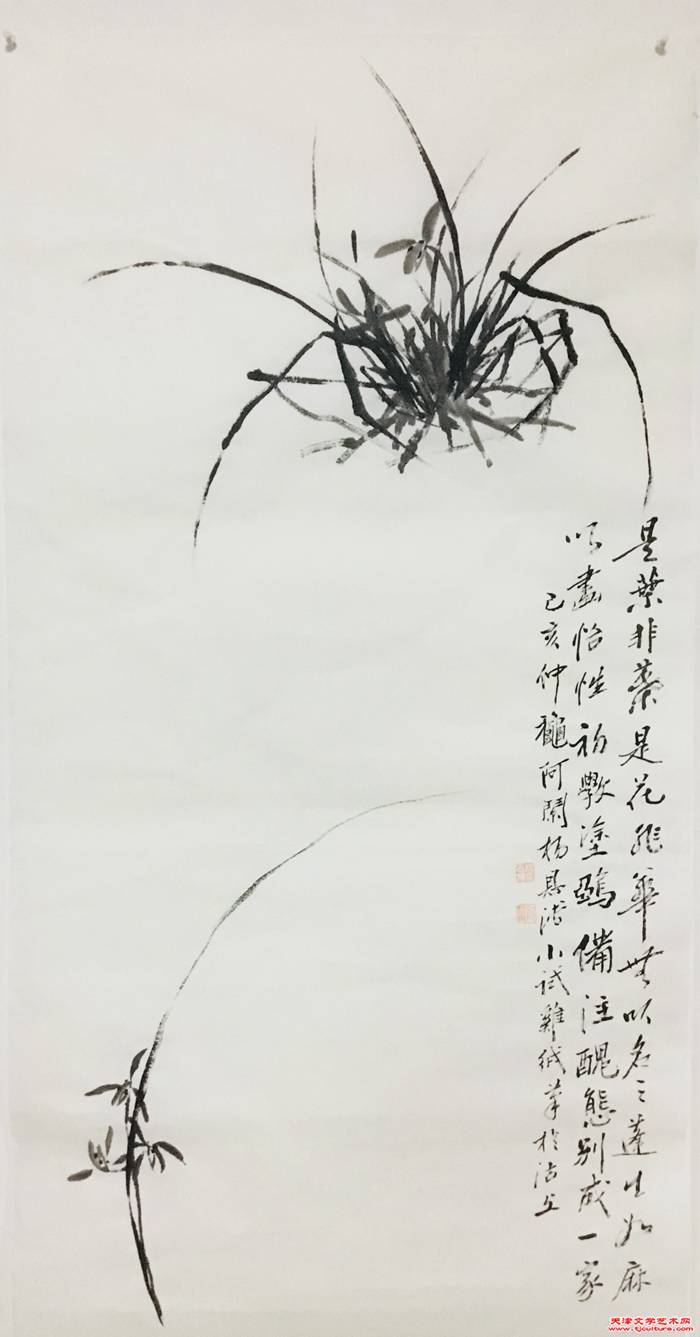 是葉非葉是花非華無以名之蓬生如麻
以畫怡性初學塗鴉備注醜態別成一家
己亥仲龝阿閑楊恩溥小試雞絨筆於沽上
天津文学艺术网
www.tjculture.com